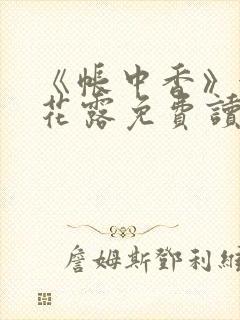 《帳中香》
花露免費讀
詹姆斯鄧利維